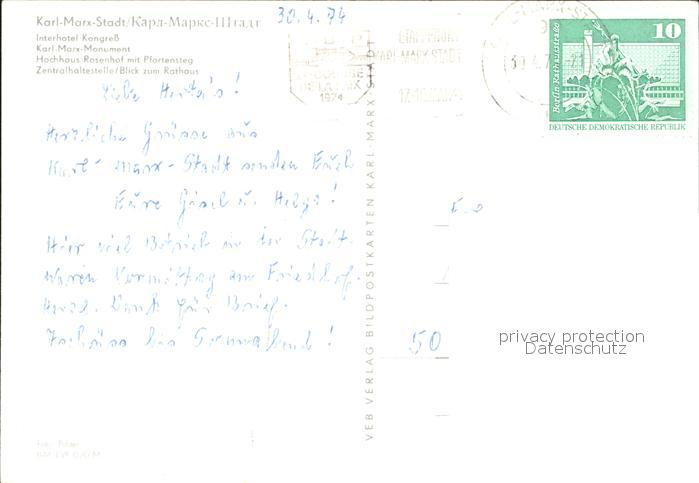 Karl-Marx-Stadt/Карл-Маркс-Штадт
30.4.74
Interhotel Kongreß
Karl-Marx-Monument
Hochhaus Rosenhof mit Pfortensteg
Zentralhaltestelle/Blick zum Rathaus
Liebe
Herzliche Grüsse aus
Karl-Marx-Stadt senden Euch
Eure Gisel u. Helga!
Hier viel Betrieb in der Stadt.
Waren Vormittag am Friedhof.
Herzl. Dank für Brief.
bis
50
VEB VERLAG BILDPOSTKARTEN KARL-MARX-STADT
1974
KARL-MARX-STADT
10
Berlin, Rathausstraße
DEUTSCHE DEMOKRATISCHE REPUBLIK
privacy protection
Datenschutz